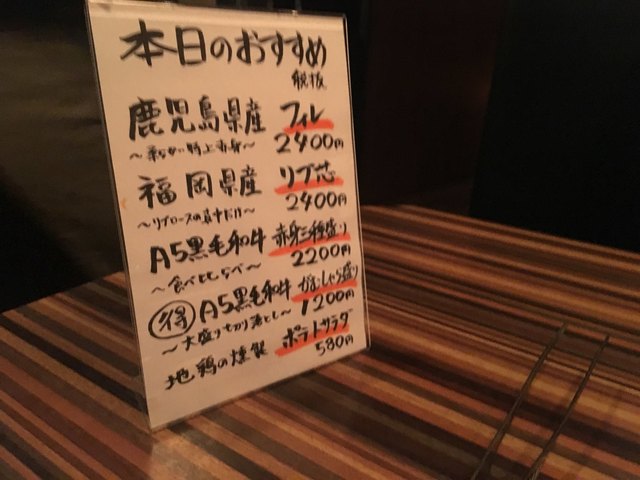 本日のおすすめ
税抜
鹿児島県産 フィレ
～柔らかい特上赤身～ 2400円
福岡県産 リブ芯
～リブロースの真ん中だけ～ 2400円
A5黒毛和牛 赤身三種盛り
～食べ比らべ～ 2200円
得 A5黒毛和牛 がむしゃら盛り
～大盛り切り落とし～ 1200円
地鶏の燻製 ポテトサラダ
580円